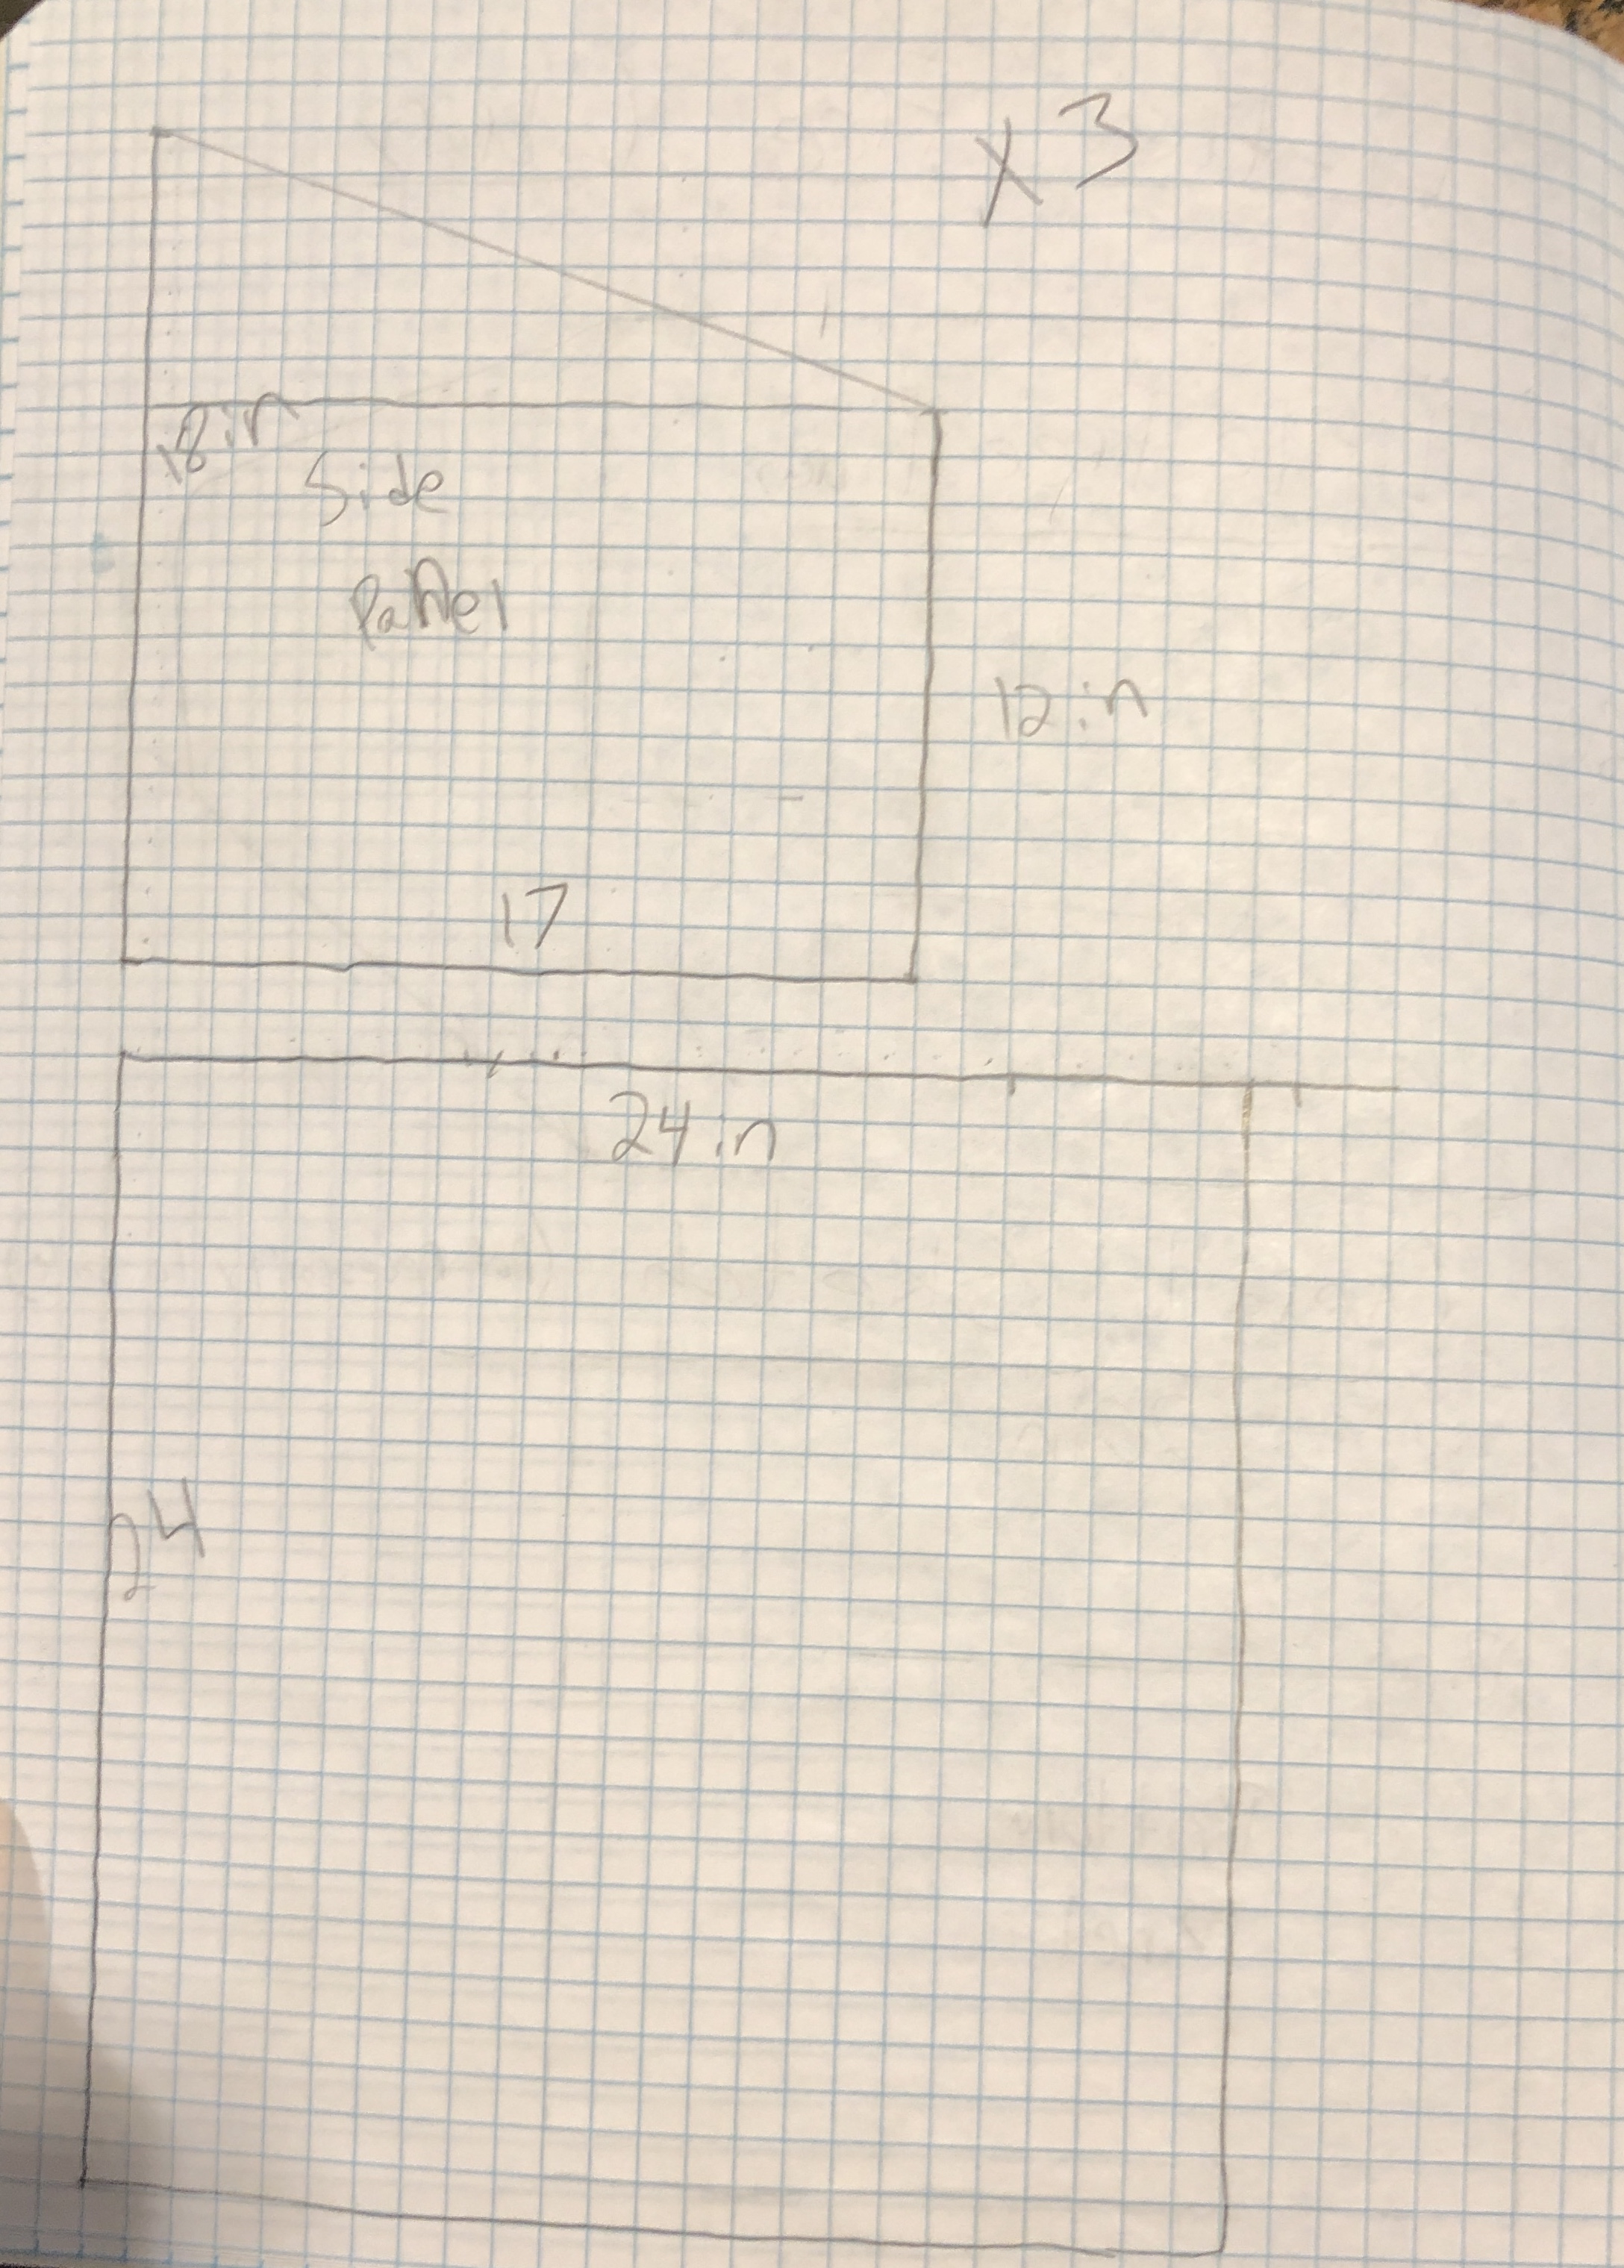 x3
18 in
Side
Panel
12 in
17
24 in
24